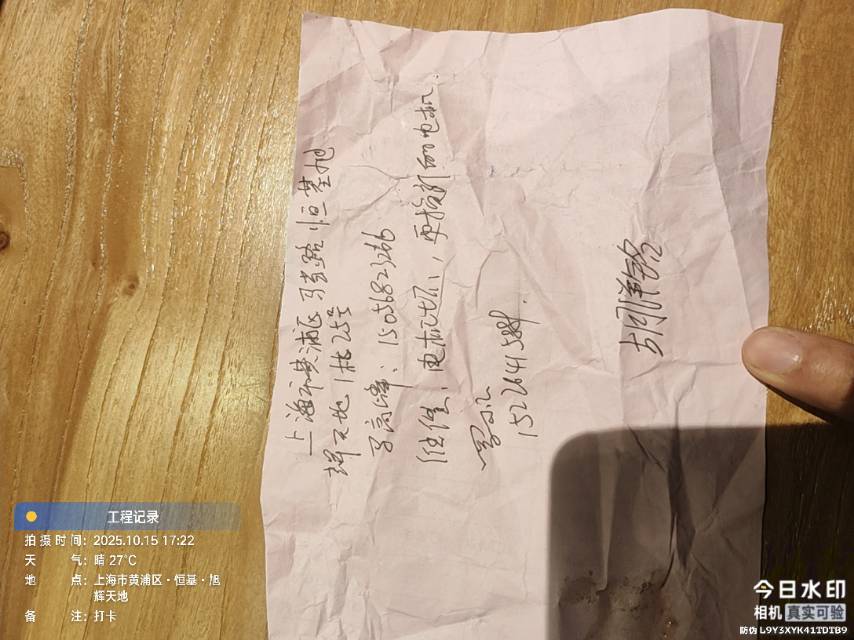 上海市黄浦区马当路恒基旭
辉天地1栋25号
高峰：15056823266
维修：电机坏，更换新的电机.
15226415884.
工程记录
拍摄时间：2025.10.15 17:22
天气：晴 27°C
地点：上海市黄浦区·恒基·旭
辉天地
备注：打卡
今日水印
相机 真实可验
防伪 L9Y3XYK41TDTB9